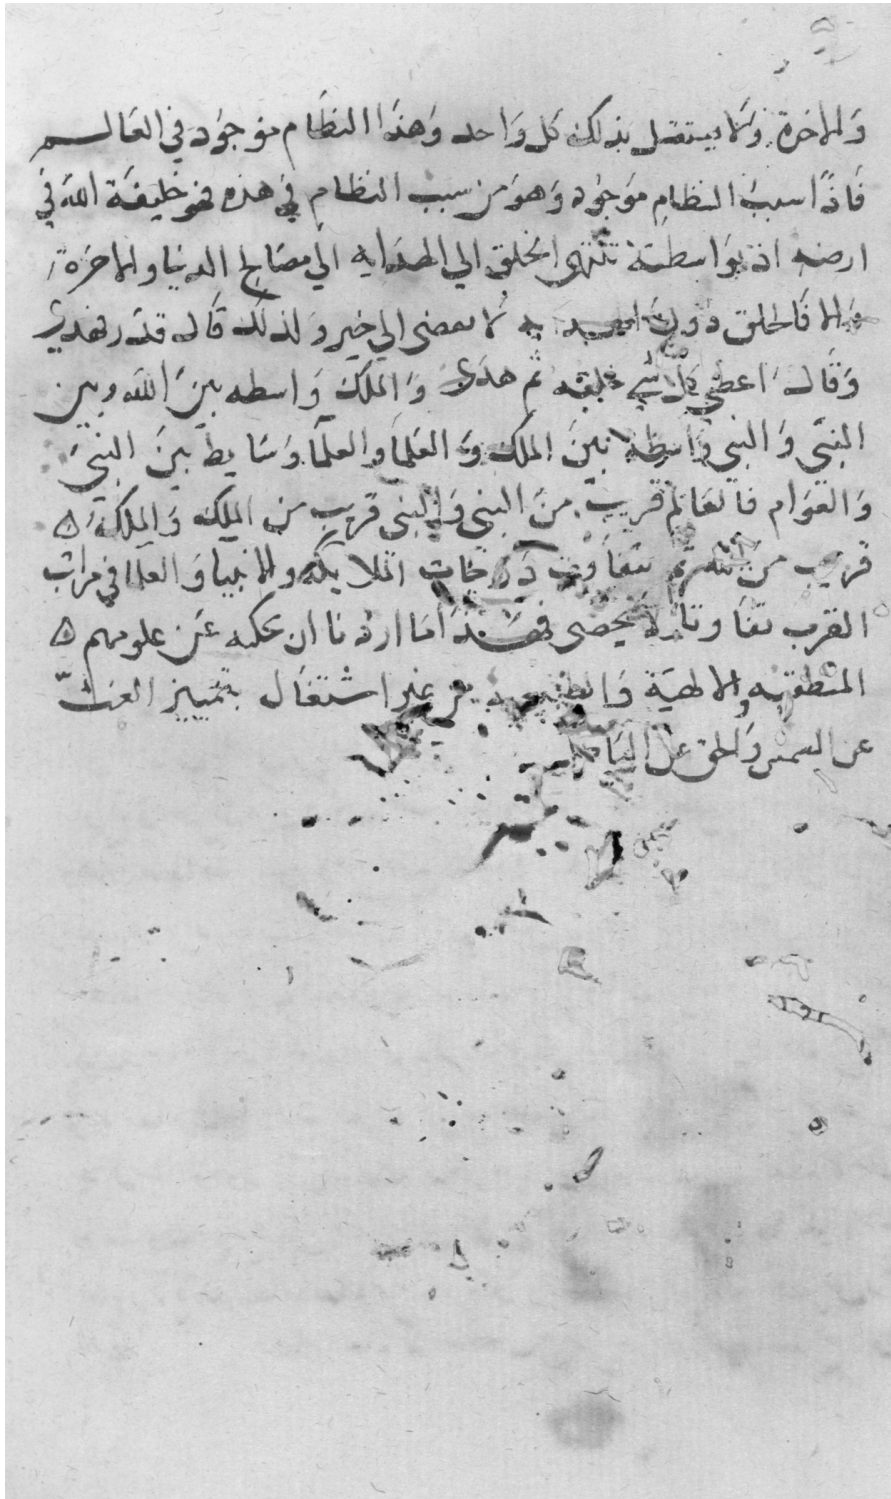 والاخرة ولا يستقل بذلك كل واحد وهذا النظام موجود في العالم
فاذا سبب النظام موجود وهو من سبب النظام في هذه فهو خليفة الله في
ارضه اذ بواسطته تنتهى الخلق الي الهدايه الي مصالح الدنيا والاخرة
والا فالخلق دون الهدايه لا يفضى الي خير ولذلك قال قدر فهدي
وقال اعطي كل شي خلقه ثم هدي والملك واسطه بين الله وبين
النبي والنبي واسطه بين الملك والعلما والعلما وسايط بين النبي
والعوام فالعالم قريب من النبي والنبي قريب من الملك والملك ه
قريب من ثم تتفاوت درجات الملايكه والانبيا والعلما في مراتب
القرب تفاوتا لا يحصى فهذا ما اردنا ان نحكيه عن علومهم ه
المنطقيه والالهية والطبيعيه من غير اشتغال بتمييز الغث
عن السمين والحق عن الباطل